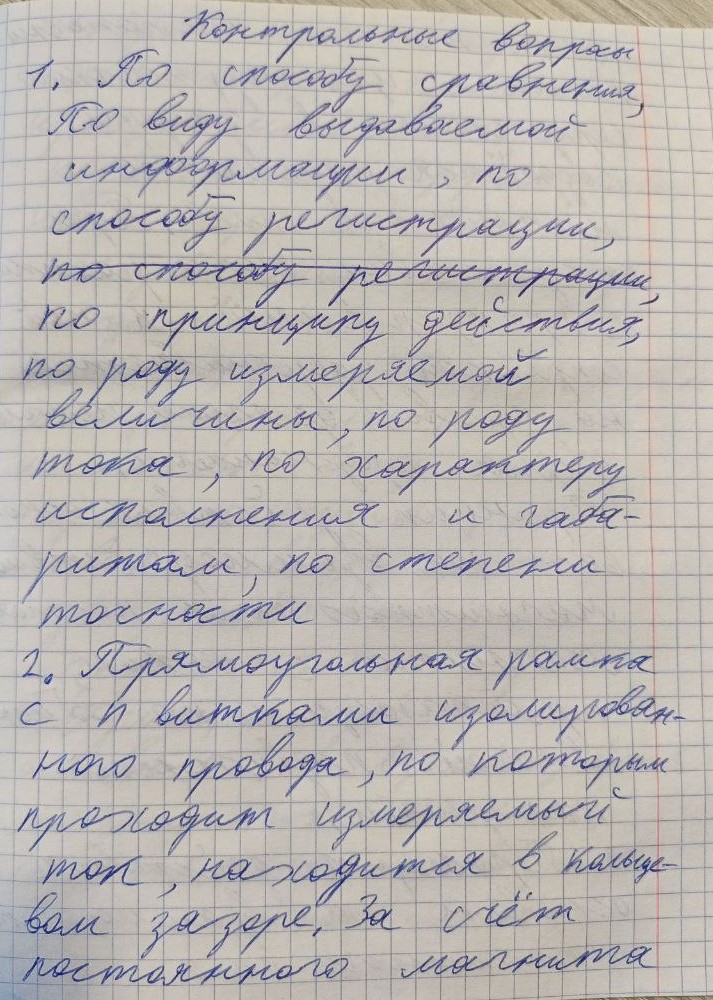 Контрольные вопросы
1. По способу сравнения,
по виду выдаваемой
информации, по
способу регистрации,
по способу регистрации,
по принципу действия,
по роду измеряемой
величины, по роду
тока, по характеру
исполнения и габа-
ритам, по степени
точности
2. Прямоугольная рамка
с n витками изолирован-
ного провода, по которым
проходит измеряемый
ток, находится в кольце-
вом зазоре. За счёт
постоянного магнита